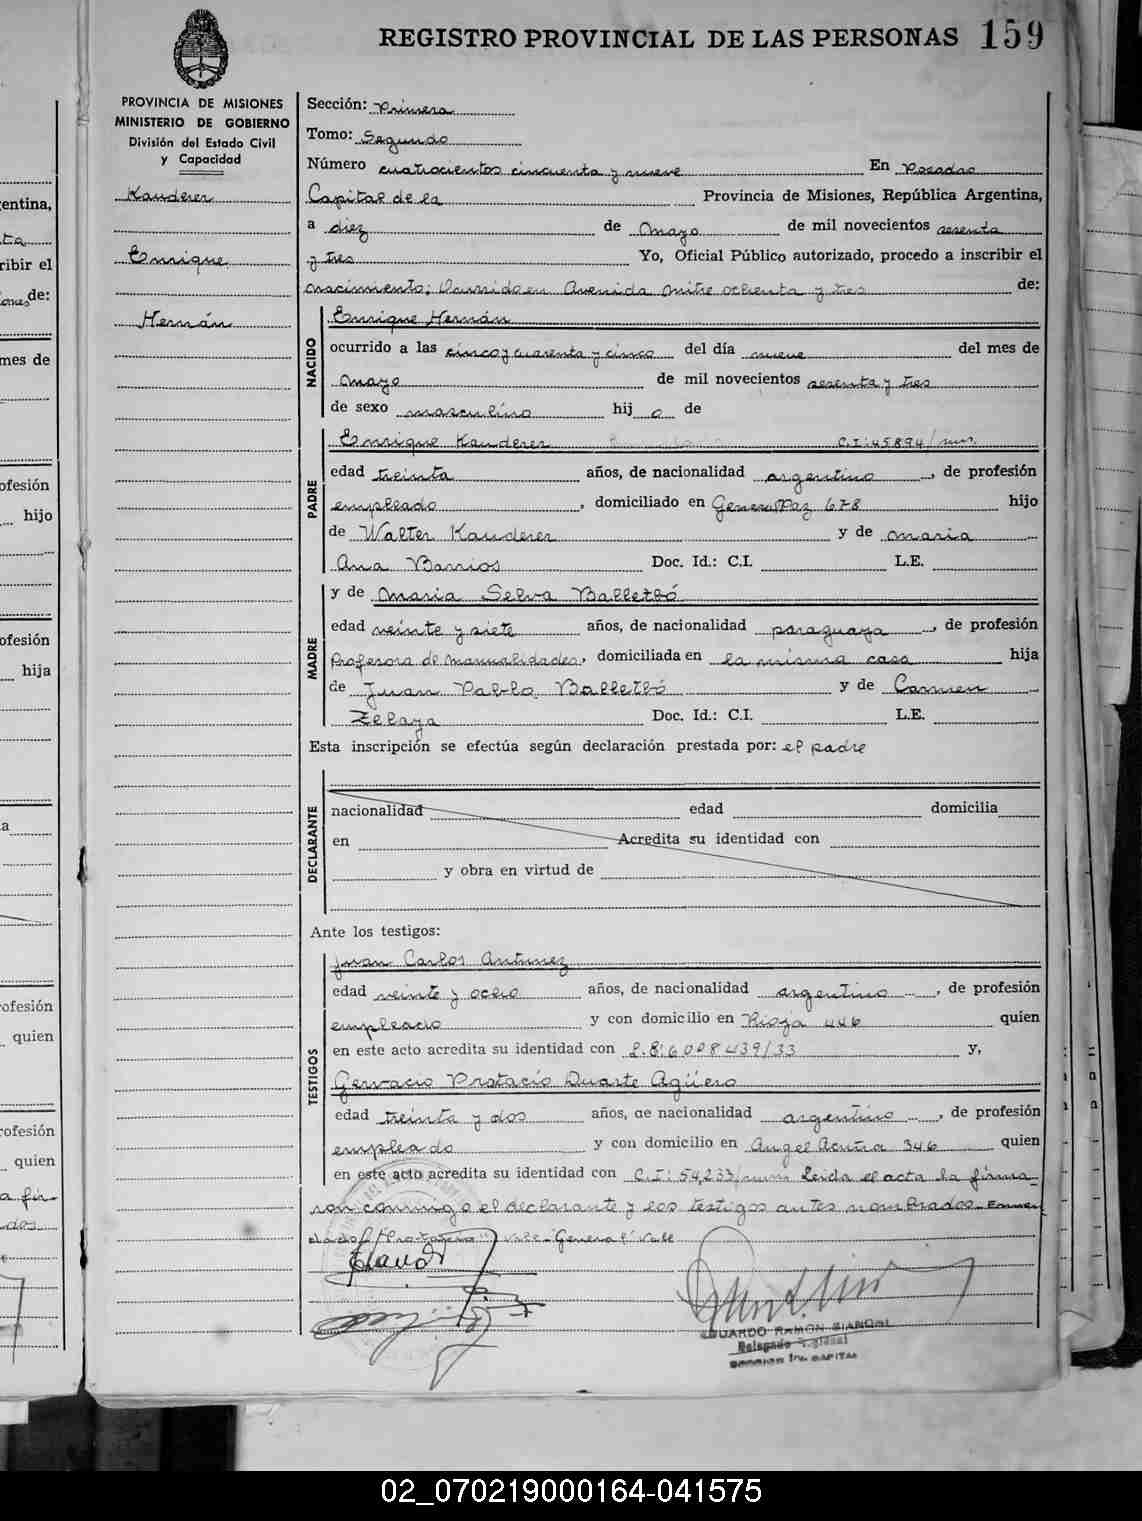 REGISTRO PROVINCIAL DE LAS PERSONAS 159
PROVINCIA DE MISIONES
MINISTERIO DE GOBIERNO
División del Estado Civil
y Capacidad
Kauderer
Enrique
Hernán
Sección: Primera
Tomo: Segundo
Número cuatrocientos cincuenta y nueve En Posadas
Capital de la Provincia de Misiones, República Argentina,
a diez de Mayo de mil novecientos sesenta
y tres Yo, Oficial Público autorizado, procedo a inscribir el
nacimiento: Ocurrido en Avenida Mitre ochenta y tres de:
NACIDO
Enrique Hernán
ocurrido a las cinco y cuarenta y cinco del día nueve del mes de
Mayo de mil novecientos sesenta y tres
de sexo masculino hij o de
PADRE
Enrique Kauderer C.I:45894/mns.
edad treinta años, de nacionalidad argentino, de profesión
empleado, domiciliado en General Paz 678 hijo
de Walter Kauderer y de Maria
Ana Barrios Doc. Id.: C.I. L.E.
MADRE
y de Maria Selva Balletbó
edad veinte y siete años, de nacionalidad paraguaya, de profesión
Profesora de Manualidades, domiciliada en la misma casa hija
de Juan Pablo Balletbó y de Carmen
Zelaya Doc. Id.: C.I. L.E.
Esta inscripción se efectúa según declaración prestada por: el padre
DECLARANTE
nacionalidad edad domicilia
en Acredita su identidad con
y obra en virtud de
Ante los testigos:
TESTIGOS
Juan Carlos Antunez
edad veinte y ocho años, de nacionalidad argentino, de profesión
empleado y con domicilio en Rioja 446 quien
en este acto acredita su identidad con y,
Gervacio Protacio Duarte Agüero
edad treinta y dos años, de nacionalidad argentino, de profesión
empleado y con domicilio en Angel Acuña 346 quien
en este acto acredita su identidad con C.I: 54,233/mns Leida el acta la firma-
ron conmigo el declarante y los testigos antes nombrados. Enmen
dado: Vale-General Vale
EDUARDO RAMON
Delegado Regional
SECCION 1ra. CAPITAL
02_070219000164-041575